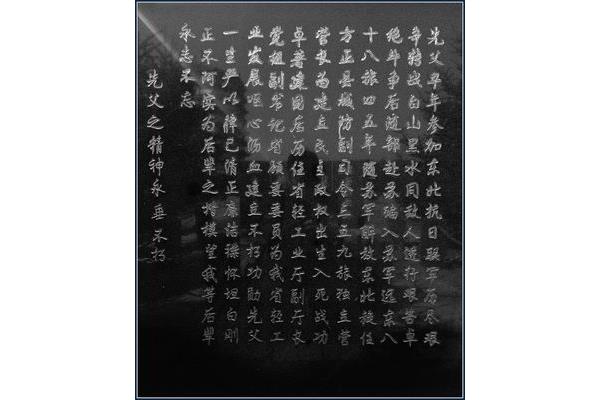 先父早年参加东北抗日联军历尽艰
辛转战白山黑水同敌人进行艰苦卓
绝斗争后随部赴苏编入苏军远东八
十八旅四五年随苏军解放东北旋任
方正县城防副司令三五九旅独立营
营长为建立民主政权出生入死战功
卓著建国后历任省轻工业厅副厅长
党组副书记省顾委委员为我省轻工
业发展呕心沥血建立不朽功勋先父
一生严以律己清正廉洁襟怀坦白刚
正不阿实为后辈之楷模望我等后辈
永志不忘
先父之精神永垂不朽